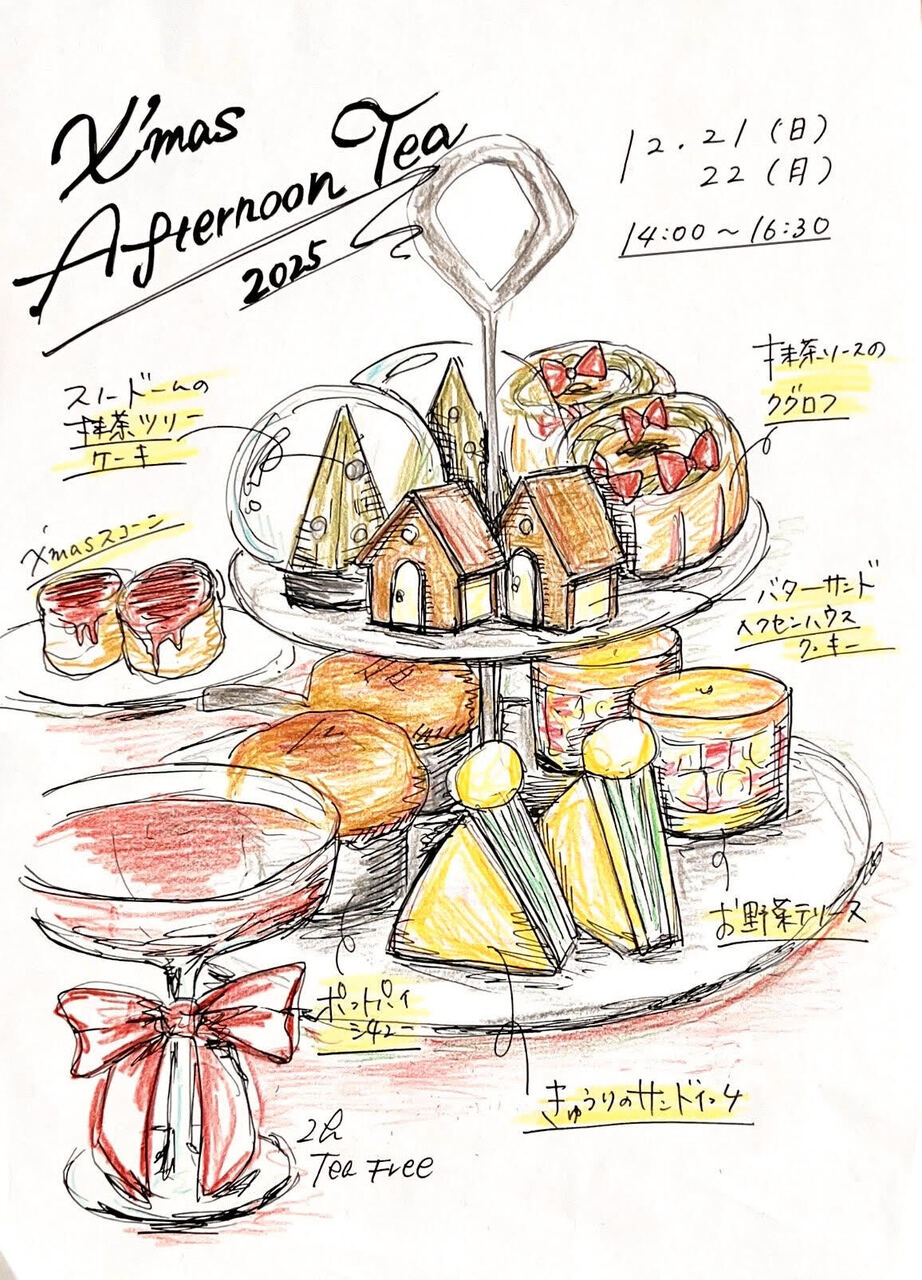 X'mas
Afternoon Tea
2025
12.21(日)
22(月)
14:00~16:30
スノードームの
抹茶ツリー
ケーキ
抹茶ソースの
クグロフ
X'masスコーン
バターサンド
ヘクセンハウス
クッキー
お野菜テリーヌ
ポットパイ
シチュー
きゅうりのサンドイッチ
2h
Tea Free